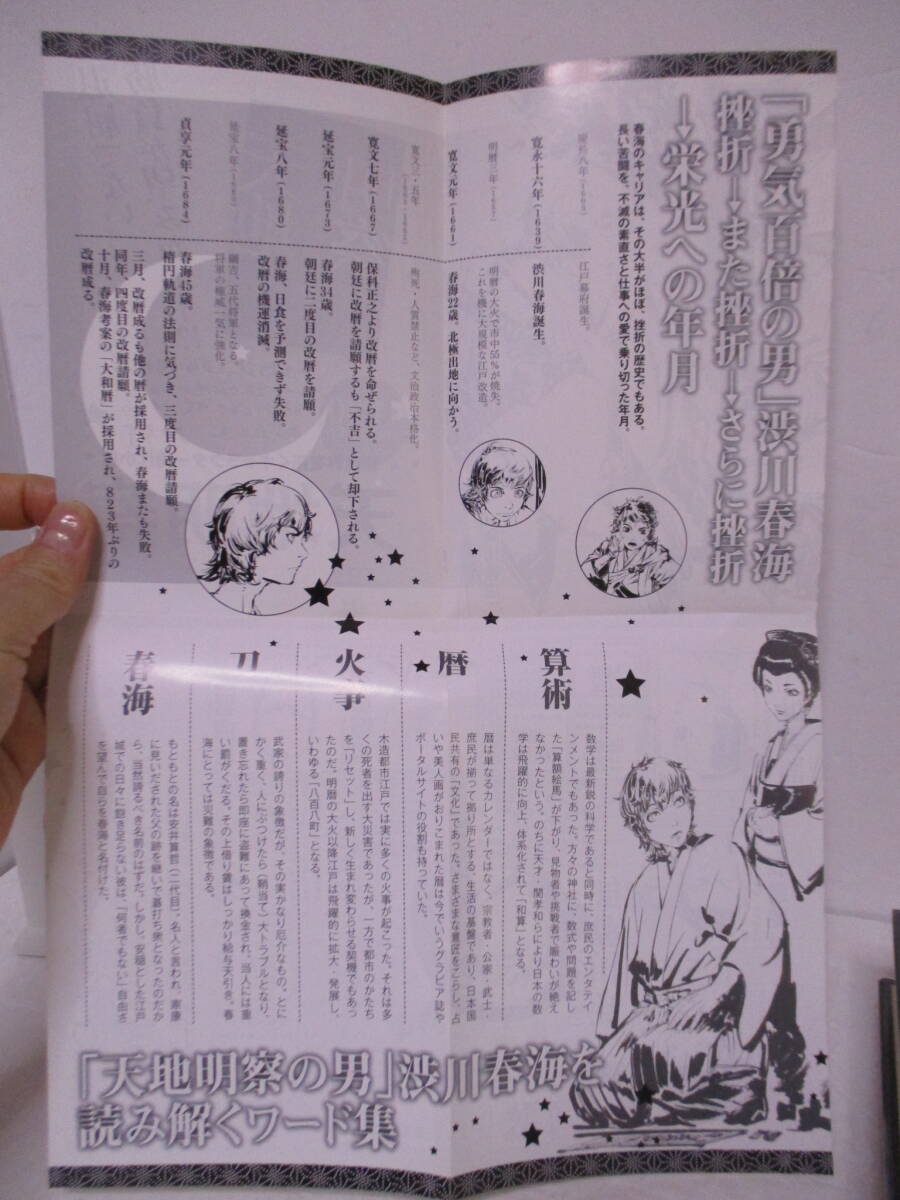 「勇気百倍の男」渋川春海
挫折→また挫折→さらに挫折
→栄光への年月
春海のキャリアは、その大半がほぼ、挫折の歴史でもある。
長い苦闘を、不滅の素直さと仕事への愛で乗り切った年月。
慶長八年(1603)
江戸幕府誕生。
寛永十六年(1639)
渋川春海誕生。
明暦三年(1657)
明暦の大火で市中55%が焼失。
これを機に大規模な江戸改造。
寛文元年(1661)
春海22歳。北極出地に向かう。
寛文三・五年
殉死・人質禁止など、文治政治本格化。
寛文七年(1667)
保科正之より改暦を命ぜられる。
朝廷に改暦を請願するも「不吉」として却下される。
延宝元年(1673)
春海34歳。
朝廷に二度目の改暦を請願。
延宝八年(1680)
春海、日食を予測できず失敗。
改暦の機運消滅。
延宝八年(1680)
綱吉、五代将軍となる。
将軍の権威一気に強化。
貞享元年(1684)
春海45歳。
楕円軌道の法則に気づき、三度目の改暦請願。
三月、改暦成るも他の暦が採用され、春海またも失敗。
同年、四度目の改暦請願。
十月、春海考案の「大和暦」が採用され、823年ぶりの
改暦成る。
算術
数学は最新鋭の科学であると同時に、庶民のエンタテイ
ンメントでもあった。方々の神社に、数式や問題を記し
た「算額絵馬」が下がり、見物者や挑戦者で賑わいが絶え
なかったという。のちに天才・関孝和らにより日本の数
学は飛躍的に向上、体系化されて「和算」となる。
暦
暦は単なるカレンダーではなく、宗教者・公家・武士・
庶民が揃って拠り所とする、生活の基盤であり、日本国
民共有の「文化」であった。さまざまな意匠をこらし、占
いや美人画がおりこまれた暦は今でいうグラビア誌や
ポータルサイトの役割も持っていた。
火事
木造都市江戸では実に多くの火事が起こった。それは多
くの死者を出す大災害であったが、一方で都市のかたち
を「リセット」し、新しく生まれ変わらせる契機でもあっ
たのだ。明暦の大火以降江戸は飛躍的に拡大・発展し、
いわゆる「八百八町」となる。
刀
武家の誇りの象徴だが、その実かなり厄介なもの。とに
かく重く、人にぶつけたら(鞘当て)大トラブルとなり、
置き忘れたら即座に盗難にあって換金され、当人には重
い罰がくだる。その上借り賃はしっかり給与天引き。春
海にとっては災難の象徴である。
春海
もともとの名は安井算哲(二代目)。名人と言われ、家康
に見いだされた父の跡を継いで碁打ち衆となったのだか
ら、当然誇るべき名前のはずだ。しかし、安穏とした江戸
城での日々に飽き足らない彼は、「何者でもない」自由さ
を望んで自らを春海と名付けた。
「天地明察の男」渋川春海を
読み解くワード集